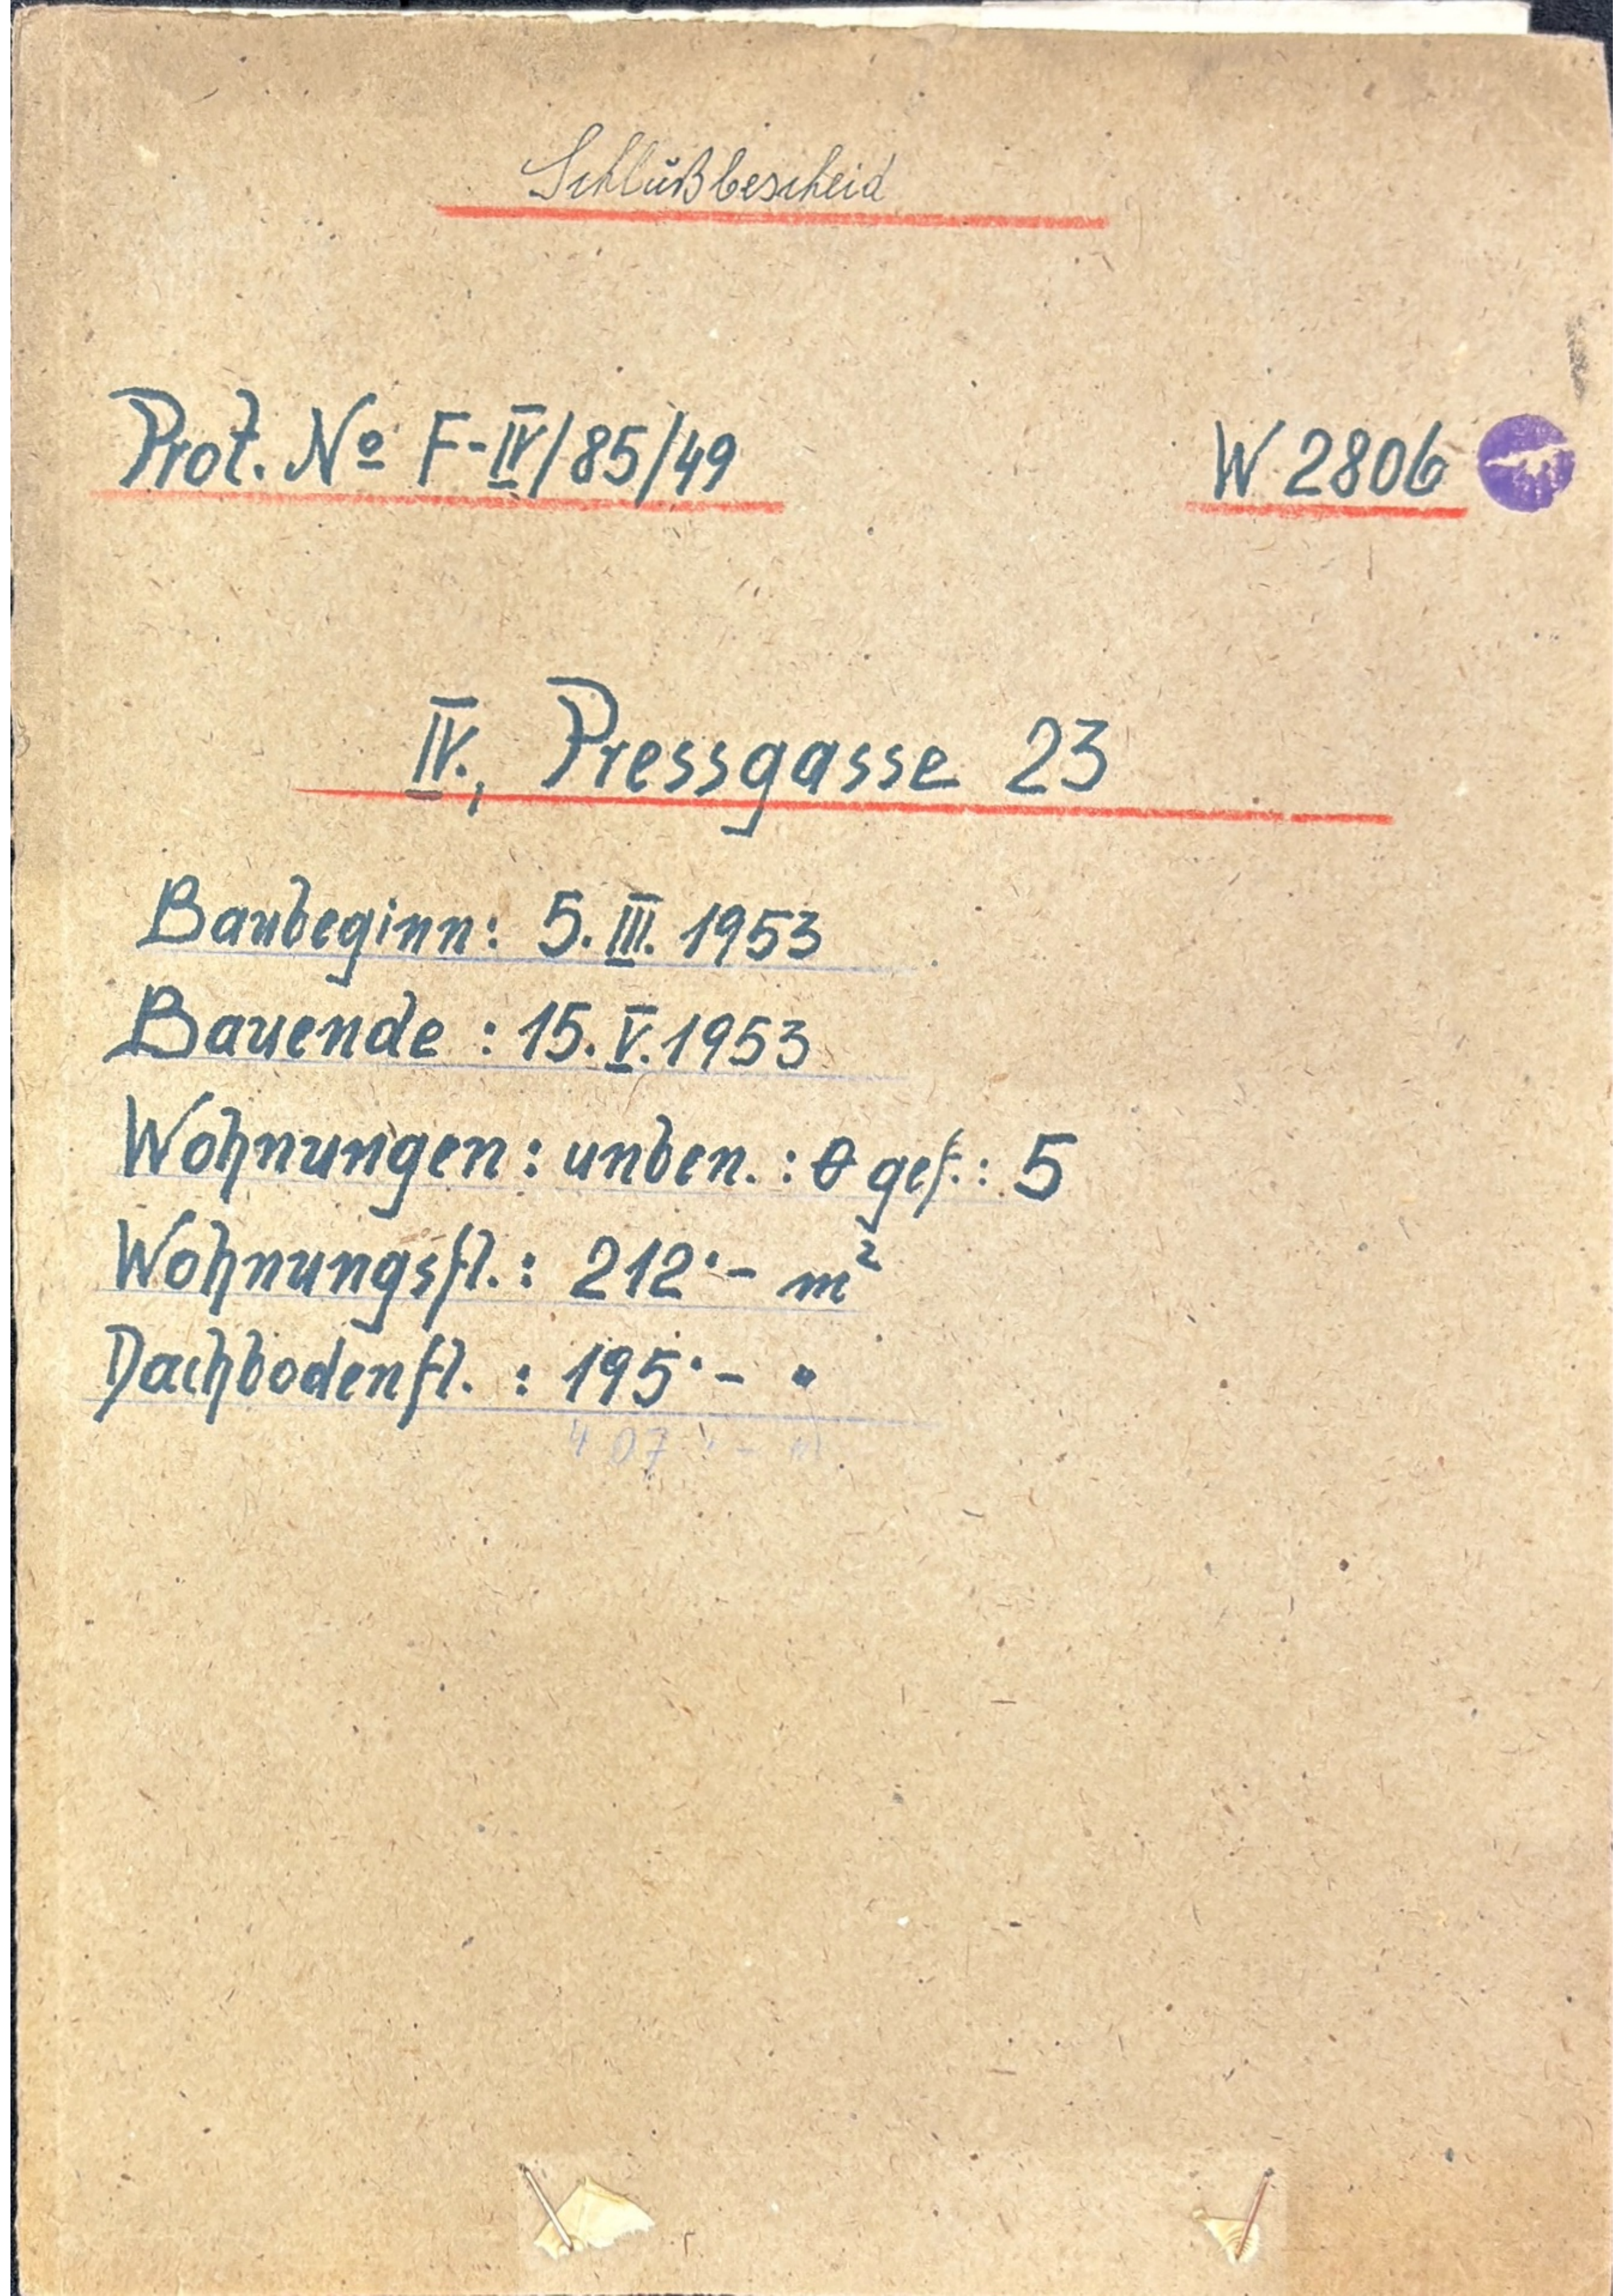 Schlußbescheid
Prot. Nº F-IV/85/49
W 2806
IV., Pressgasse 23
Baubeginn: 5. III. 1953
Bauende : 15. V. 1953
Wohnungen : unben. : 0 gef. : 5
Wohnungsfl. : 212·- m²
Dachbodenfl. : 195·- "
407·- m